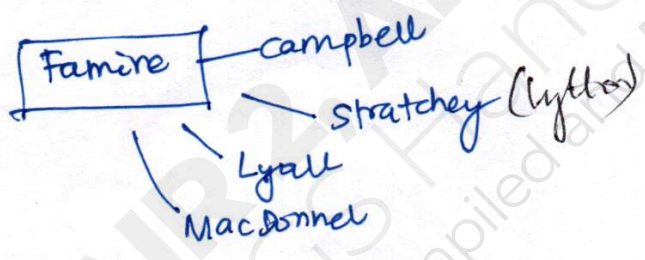 Famine
Campbell
Stratchey (Lytton)
Lyall
MacDonnel